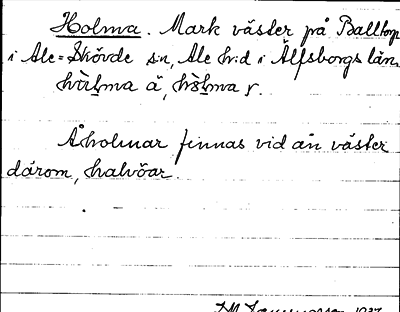 Holma. Mark väster på Balltorp
i Ale=Skövde s:n, Ale h:d i Älfsborgs län.
hòlma ä, hòlma y.
Åholmar finnas vid ån väster
därom, halvöar.
1937